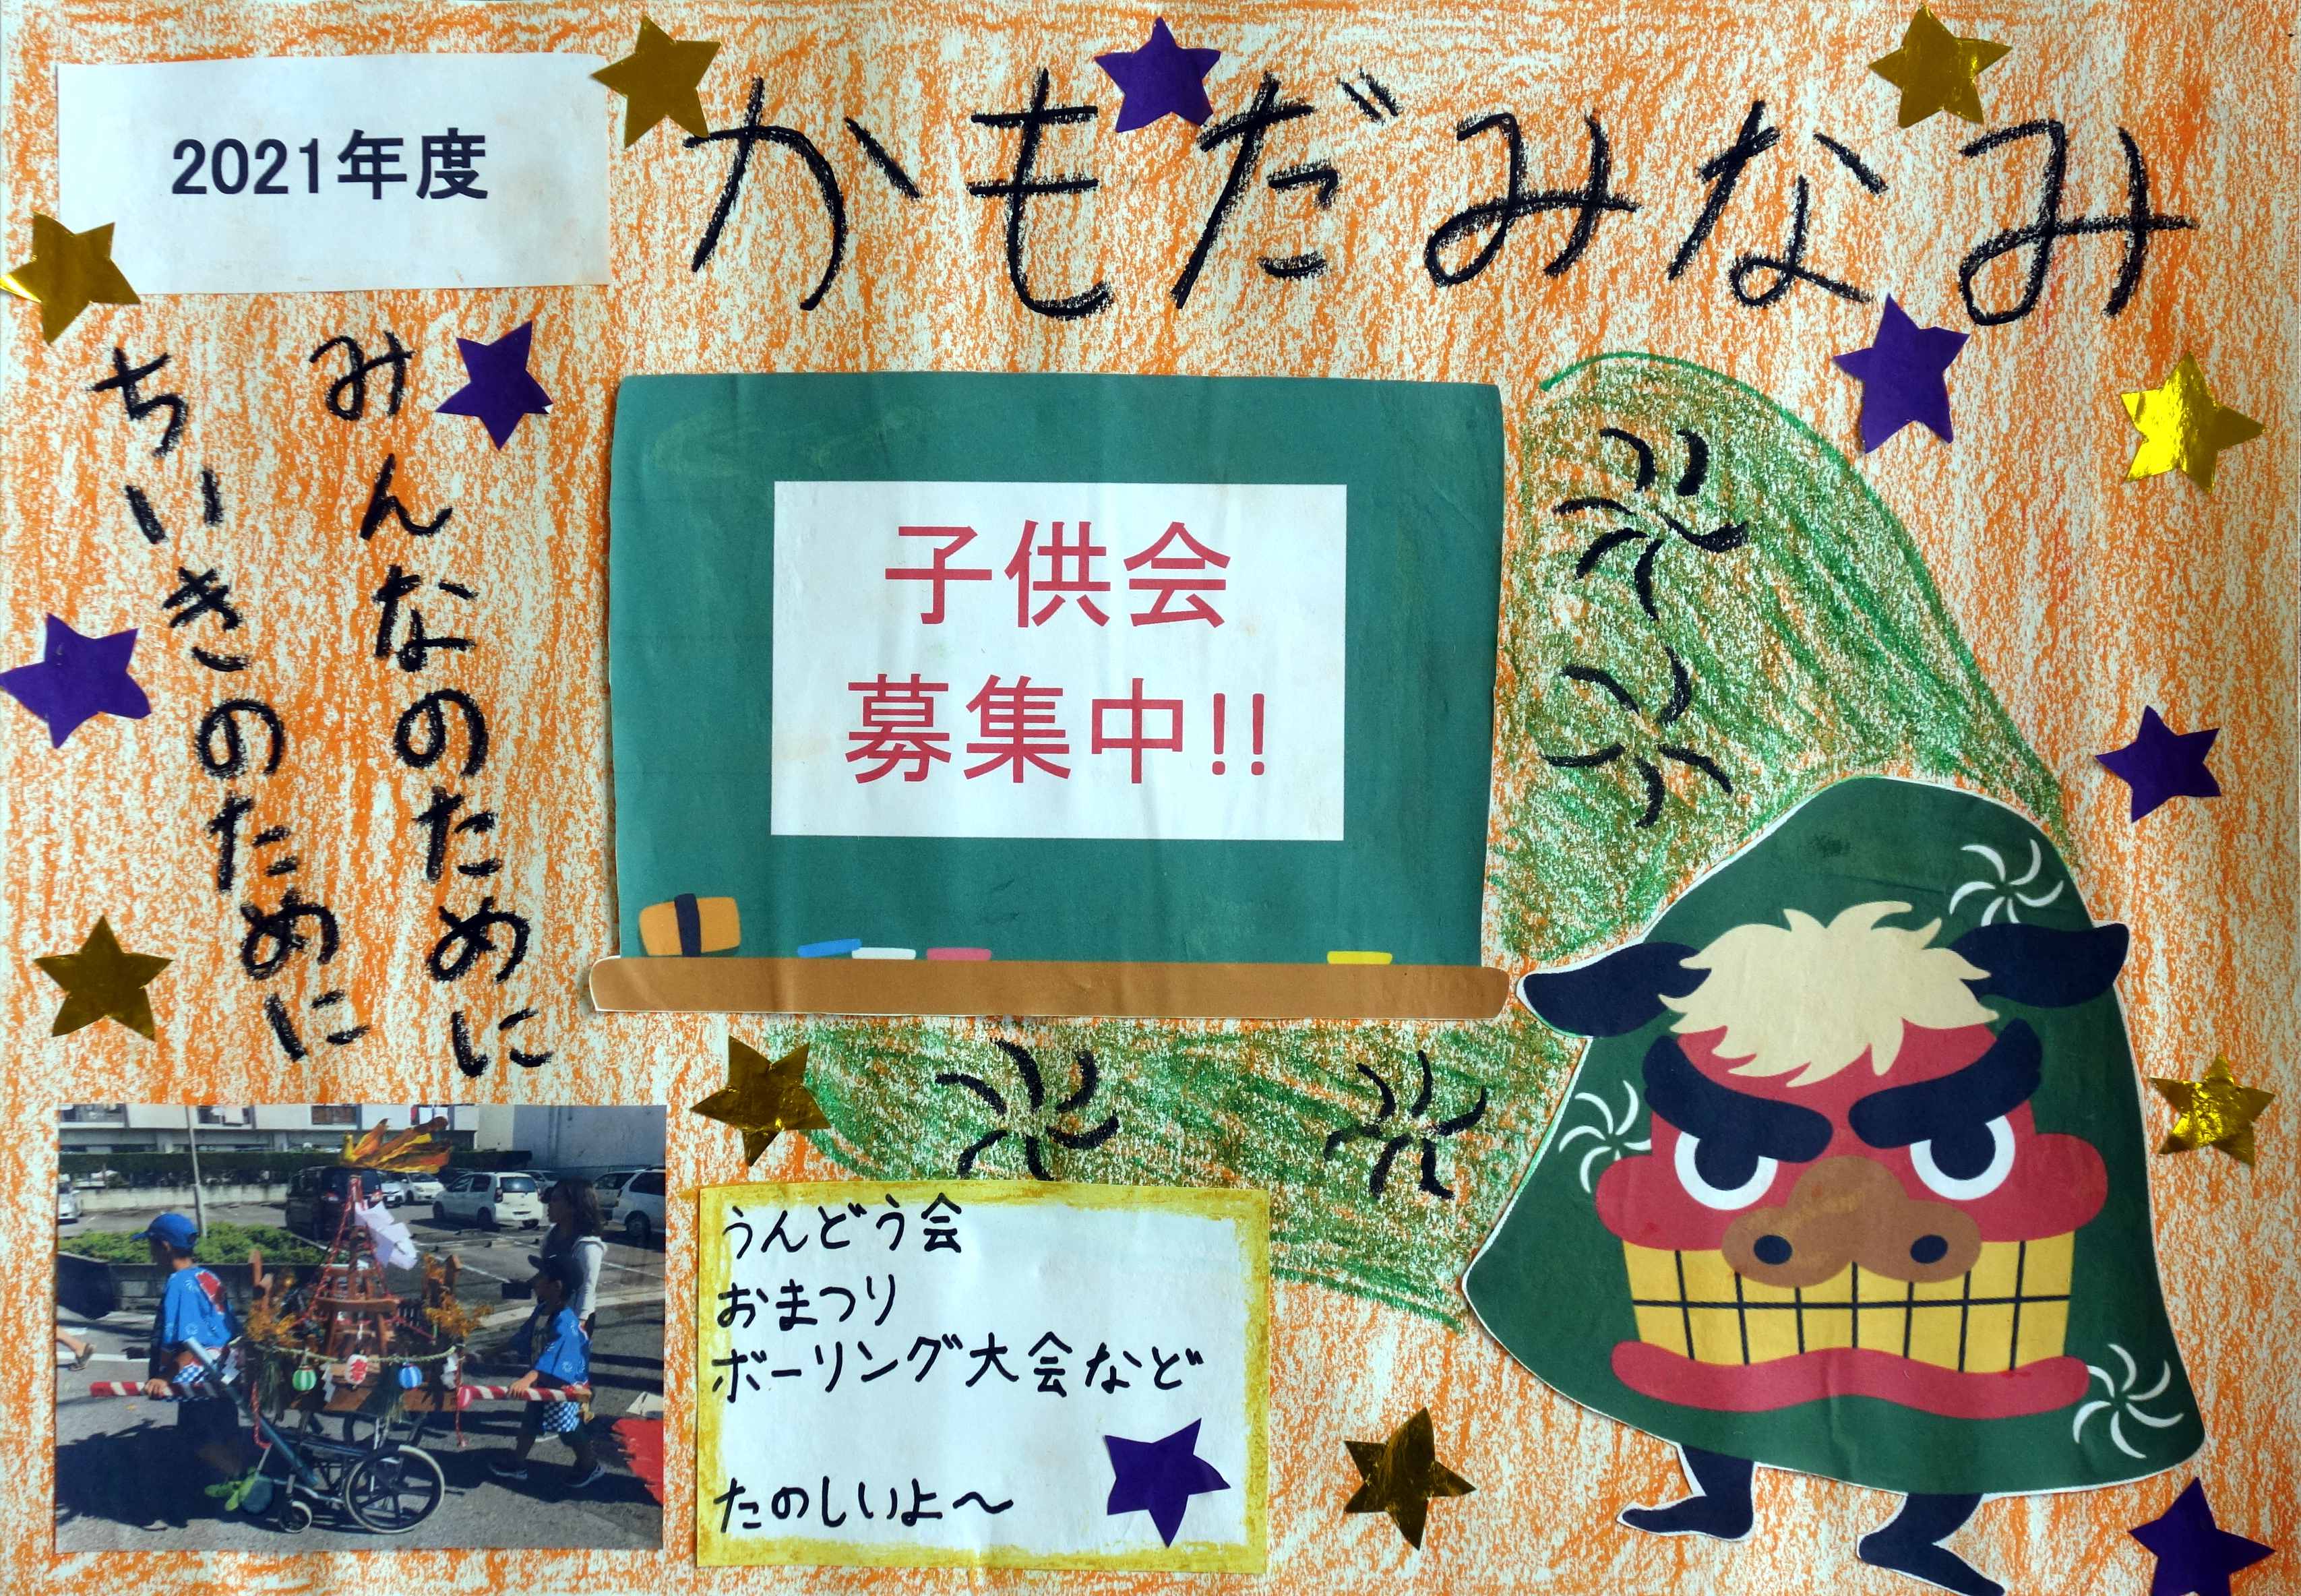 2021年度
かもだみなみ
みんなのために
ちいきのために
子供会
募集中!!
うんどう会
おまつり
ボーリング大会など
たのしいよ～